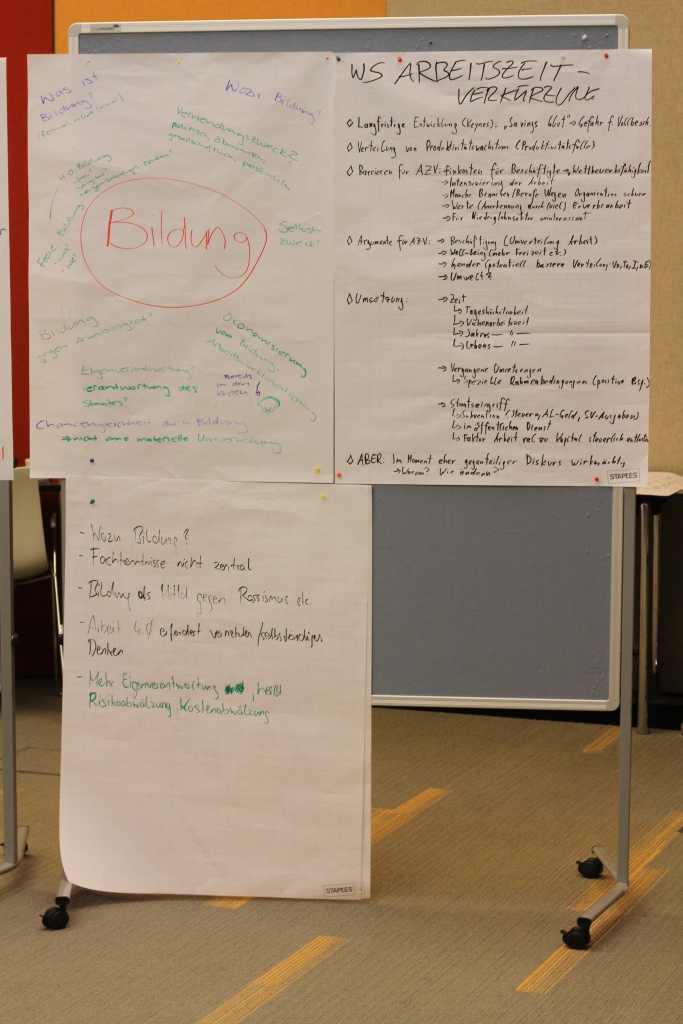 Was ist
Bildung?
Wozu Bildung?
Verwendungszweck?
politisch, ökonomisch
gesellschaftlich, persönlich
4.0 Bildung
Freie Bildung
Bildung
Selbst-
zweck?
Bildung
gegen Arbeitslosigkeit?
Ökonomisierung
von Bildung
Eigenverantwortung?
Verantwortung des
Staates?
BEREITS
IN DEN
KÖPFEN
Chancengleichheit durch Bildung
⇒ nicht ohne materielle Umverteilung
WS ARBEITSZEIT-
VERKÜRZUNG
◊ Langfristige Entwicklung (Keynes): "Savings Glut" → Gefahr f. Vollbesch.
◊ Verteilung von Produktivitätswachstum (Produktivitätsfalle)
◊ Barrieren für AZV: Fixkosten für Beschäftigte → Wettbewerbsfähigkeit
→ Intensivierung der Arbeit
→ Manche Branchen/Berufe Wegen Organisation schwer
→ Werte (Anerkennung durch (viel) Erwerbsarbeit
→ Für Niedriglohnsektor uninteressant
◊ Argumente für AZV: → Beschäftigung (Umverteilung Arbeit)
→ Well-being (mehr Freizeit etc.)
→ Gender (potentiell bessere Verteilung:
→ Umwelt?
◊ Umsetzung: → Zeit
↳ Tageshöchstarbeit
↳ Wochenarbeitszeit
↳ Jahres — " —
↳ Lebens — " —
→ Vergangene Umsetzungen
↳ Spezielle Rahmenbedingungen (positive Bsp.)
→ Staatseingriff
↳ Subvention (Steuern, AL-Geld, SV-Ausgaben)
↳ im öffentlichen Dienst
↳ Faktor Arbeit rel. zu Kapital steuerlich
◊ ABER: Im Moment eher gegenteiliger Diskurs wirkmächtig
→ Warum? Wie ändern?
STAPLES
- Wozu Bildung?
- Fachkenntnisse nicht zentral
- Bildung als Mittel gegen Rassismus etc.
- Arbeit 4.0 erfordert vernetztes/selbstständiges
Denken
- Mehr Eigenverantwortung, heißt
Risikoabwälzung, Kostenabwälzung
STAPLES